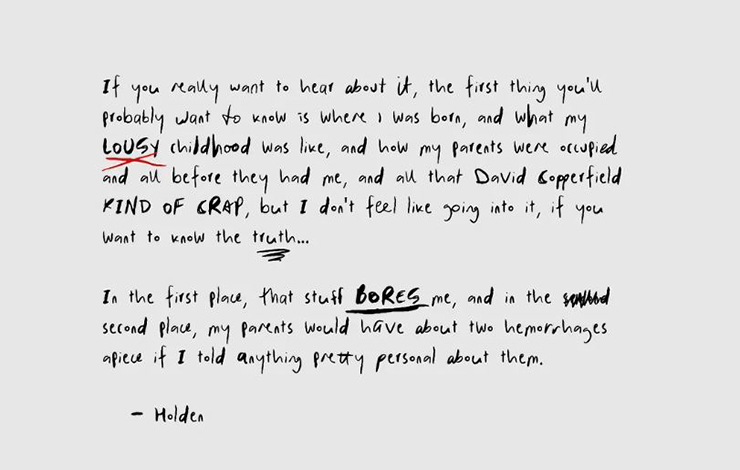 If you really want to hear about it, the first thing you'll
probably want to know is where I was born, and what my
LOUSY childhood was like, and how my parents were occupied
and all before they had me, and all that David Copperfield
KIND OF CRAP, but I don't feel like going into it, if you
want to know the truth...
In the first place, that stuff BORES me, and in the
second place, my parents would have about two hemorrhages
apiece if I told anything pretty personal about them.
- Holden